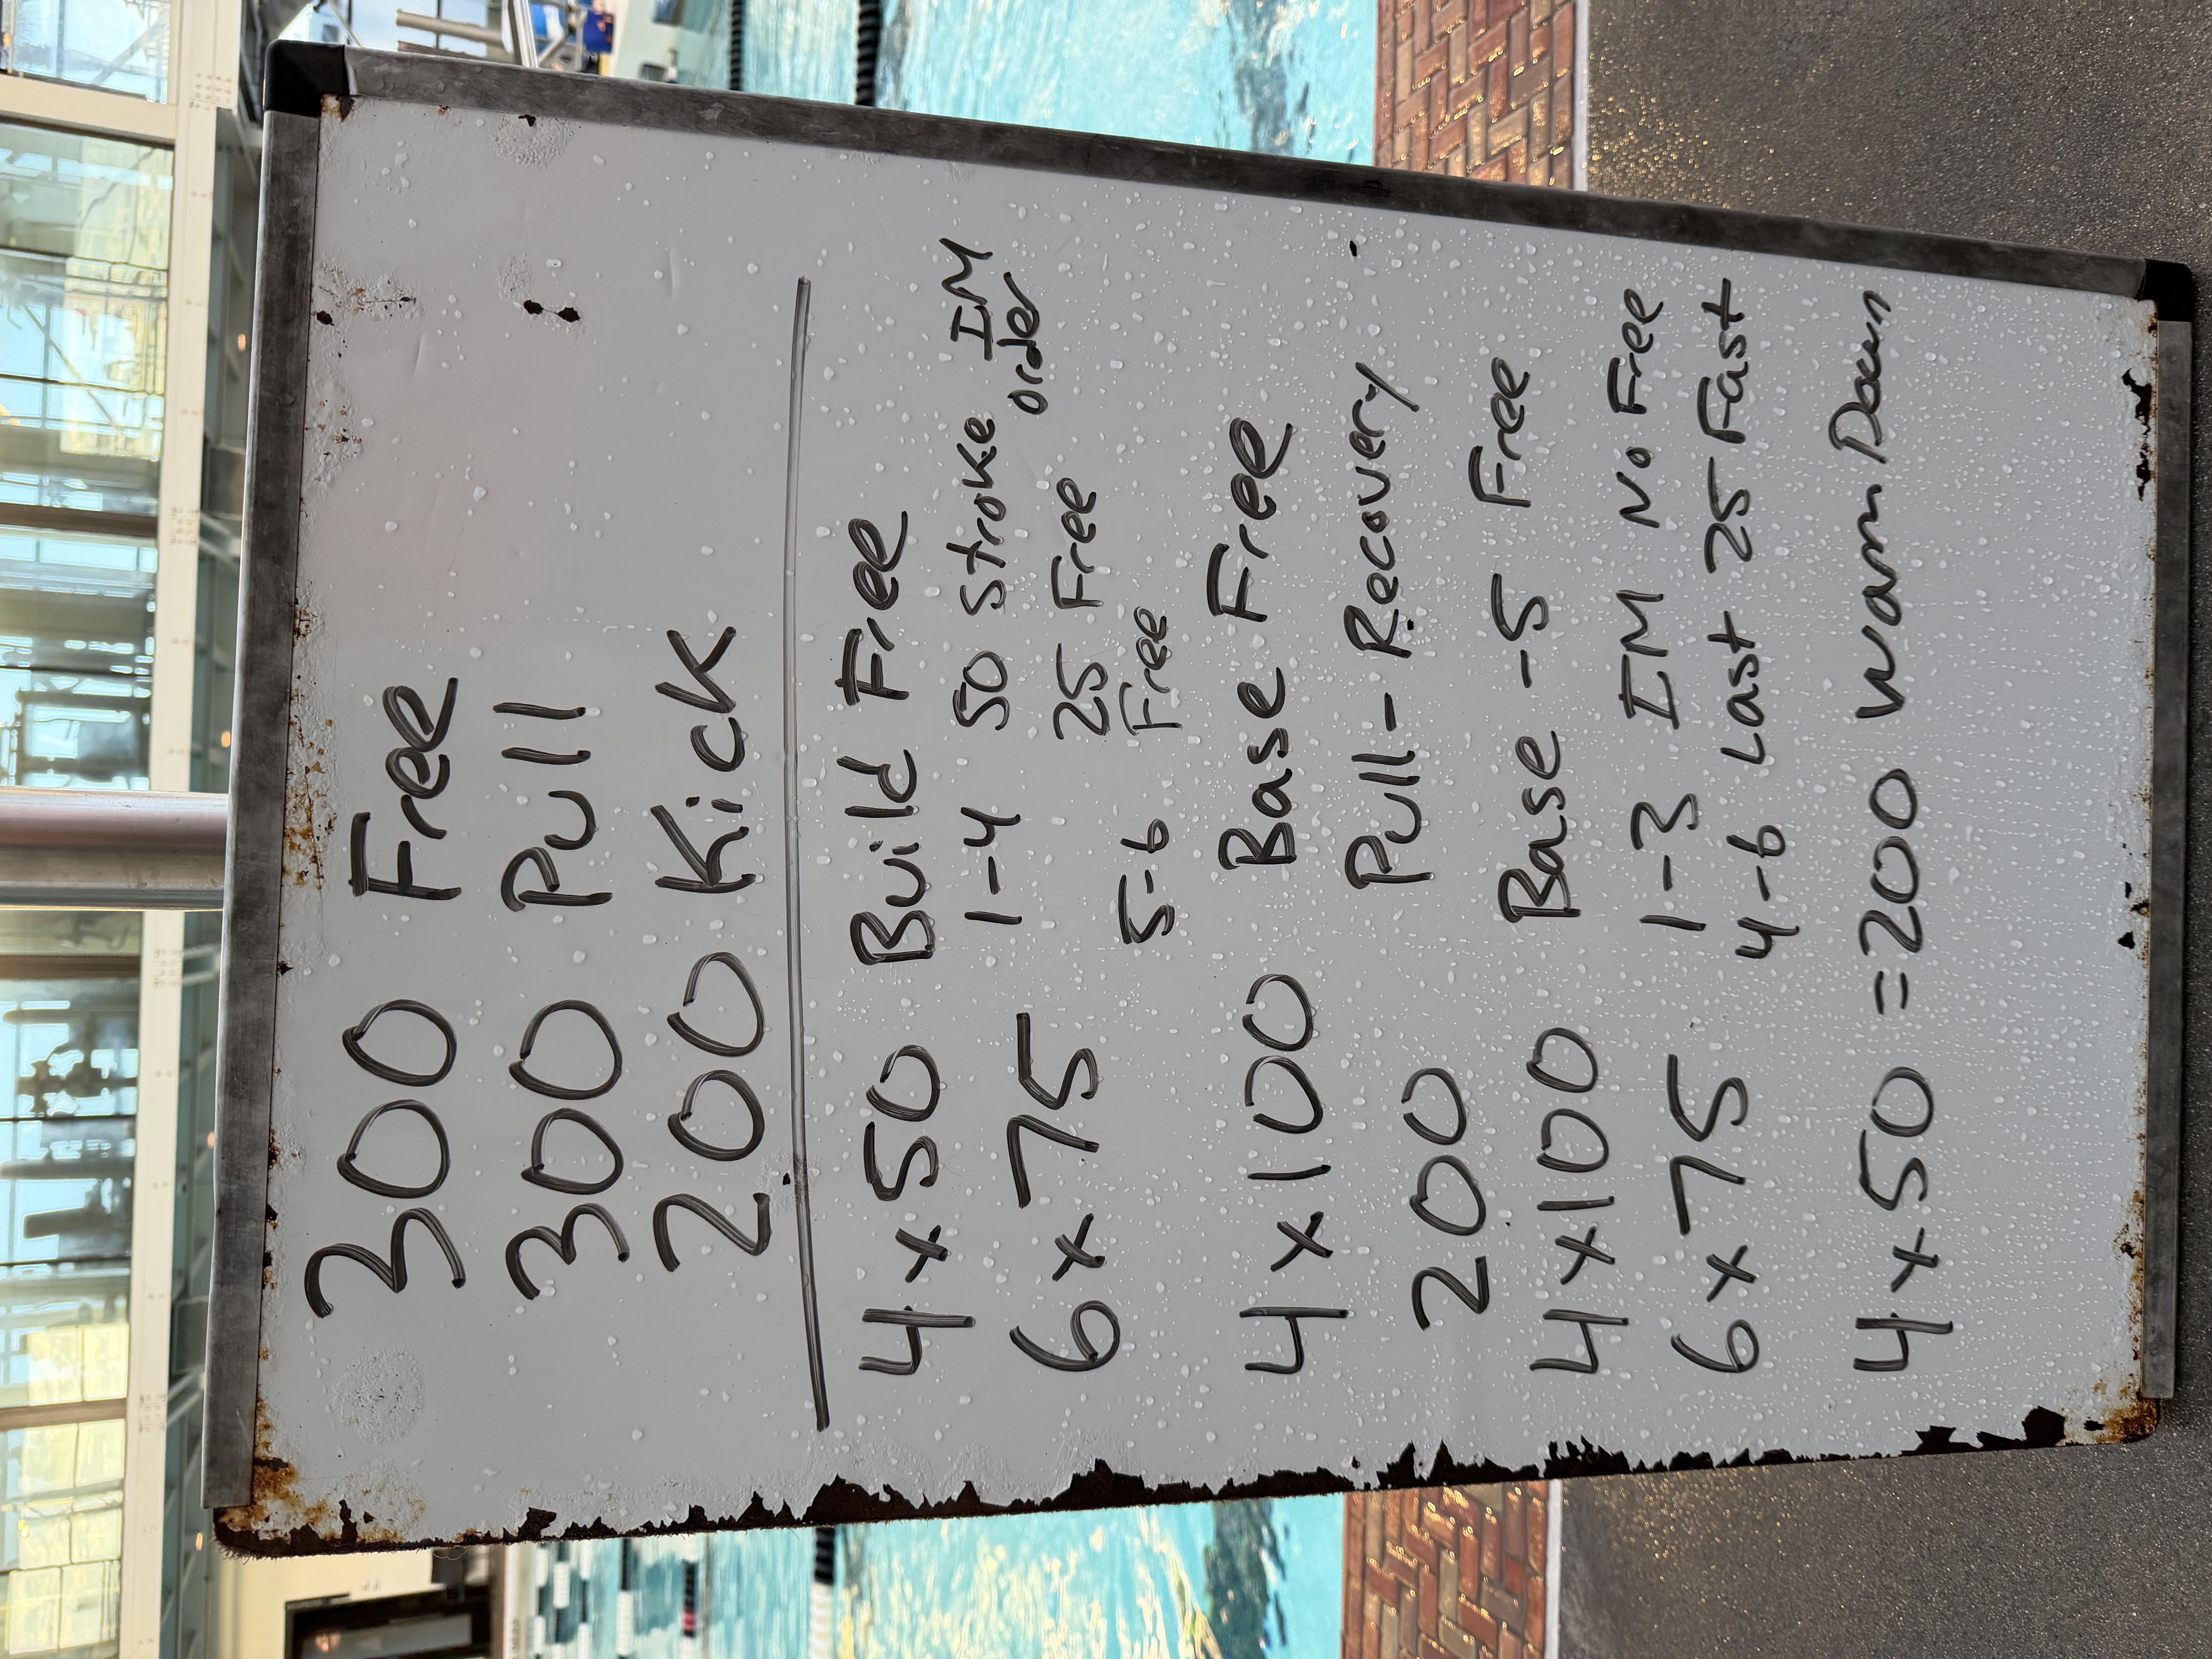 300 Free
300 Pull
200 Kick
4 x 50 Build Free
6 x 75 1-4 50 Stroke IM order
25 Free
5-6 Free
4 x 100 Base Free
200 Pull - Recovery
4 x 100 Base - 5 Free
6 x 75 1-3 IM No Free
4-6 Last 25 Fast
4 x 50 = 200 Warm Down